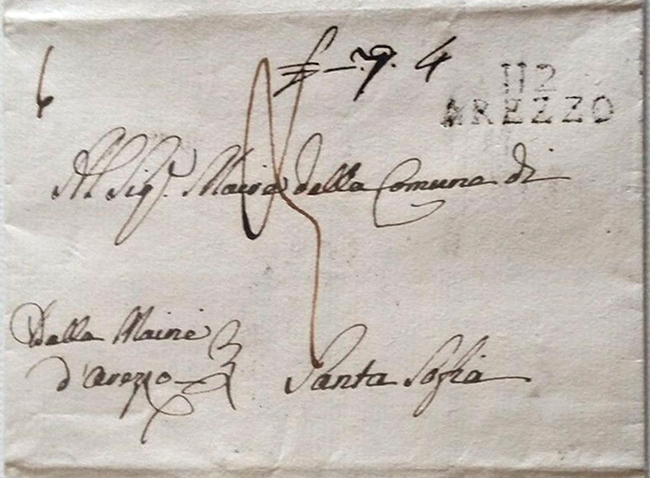 6
£ -. 7. 4
112
AREZZO
Al Sigr. Maire della Comune di
Dalla Mairie
d'Arezzo
Santa Sofia